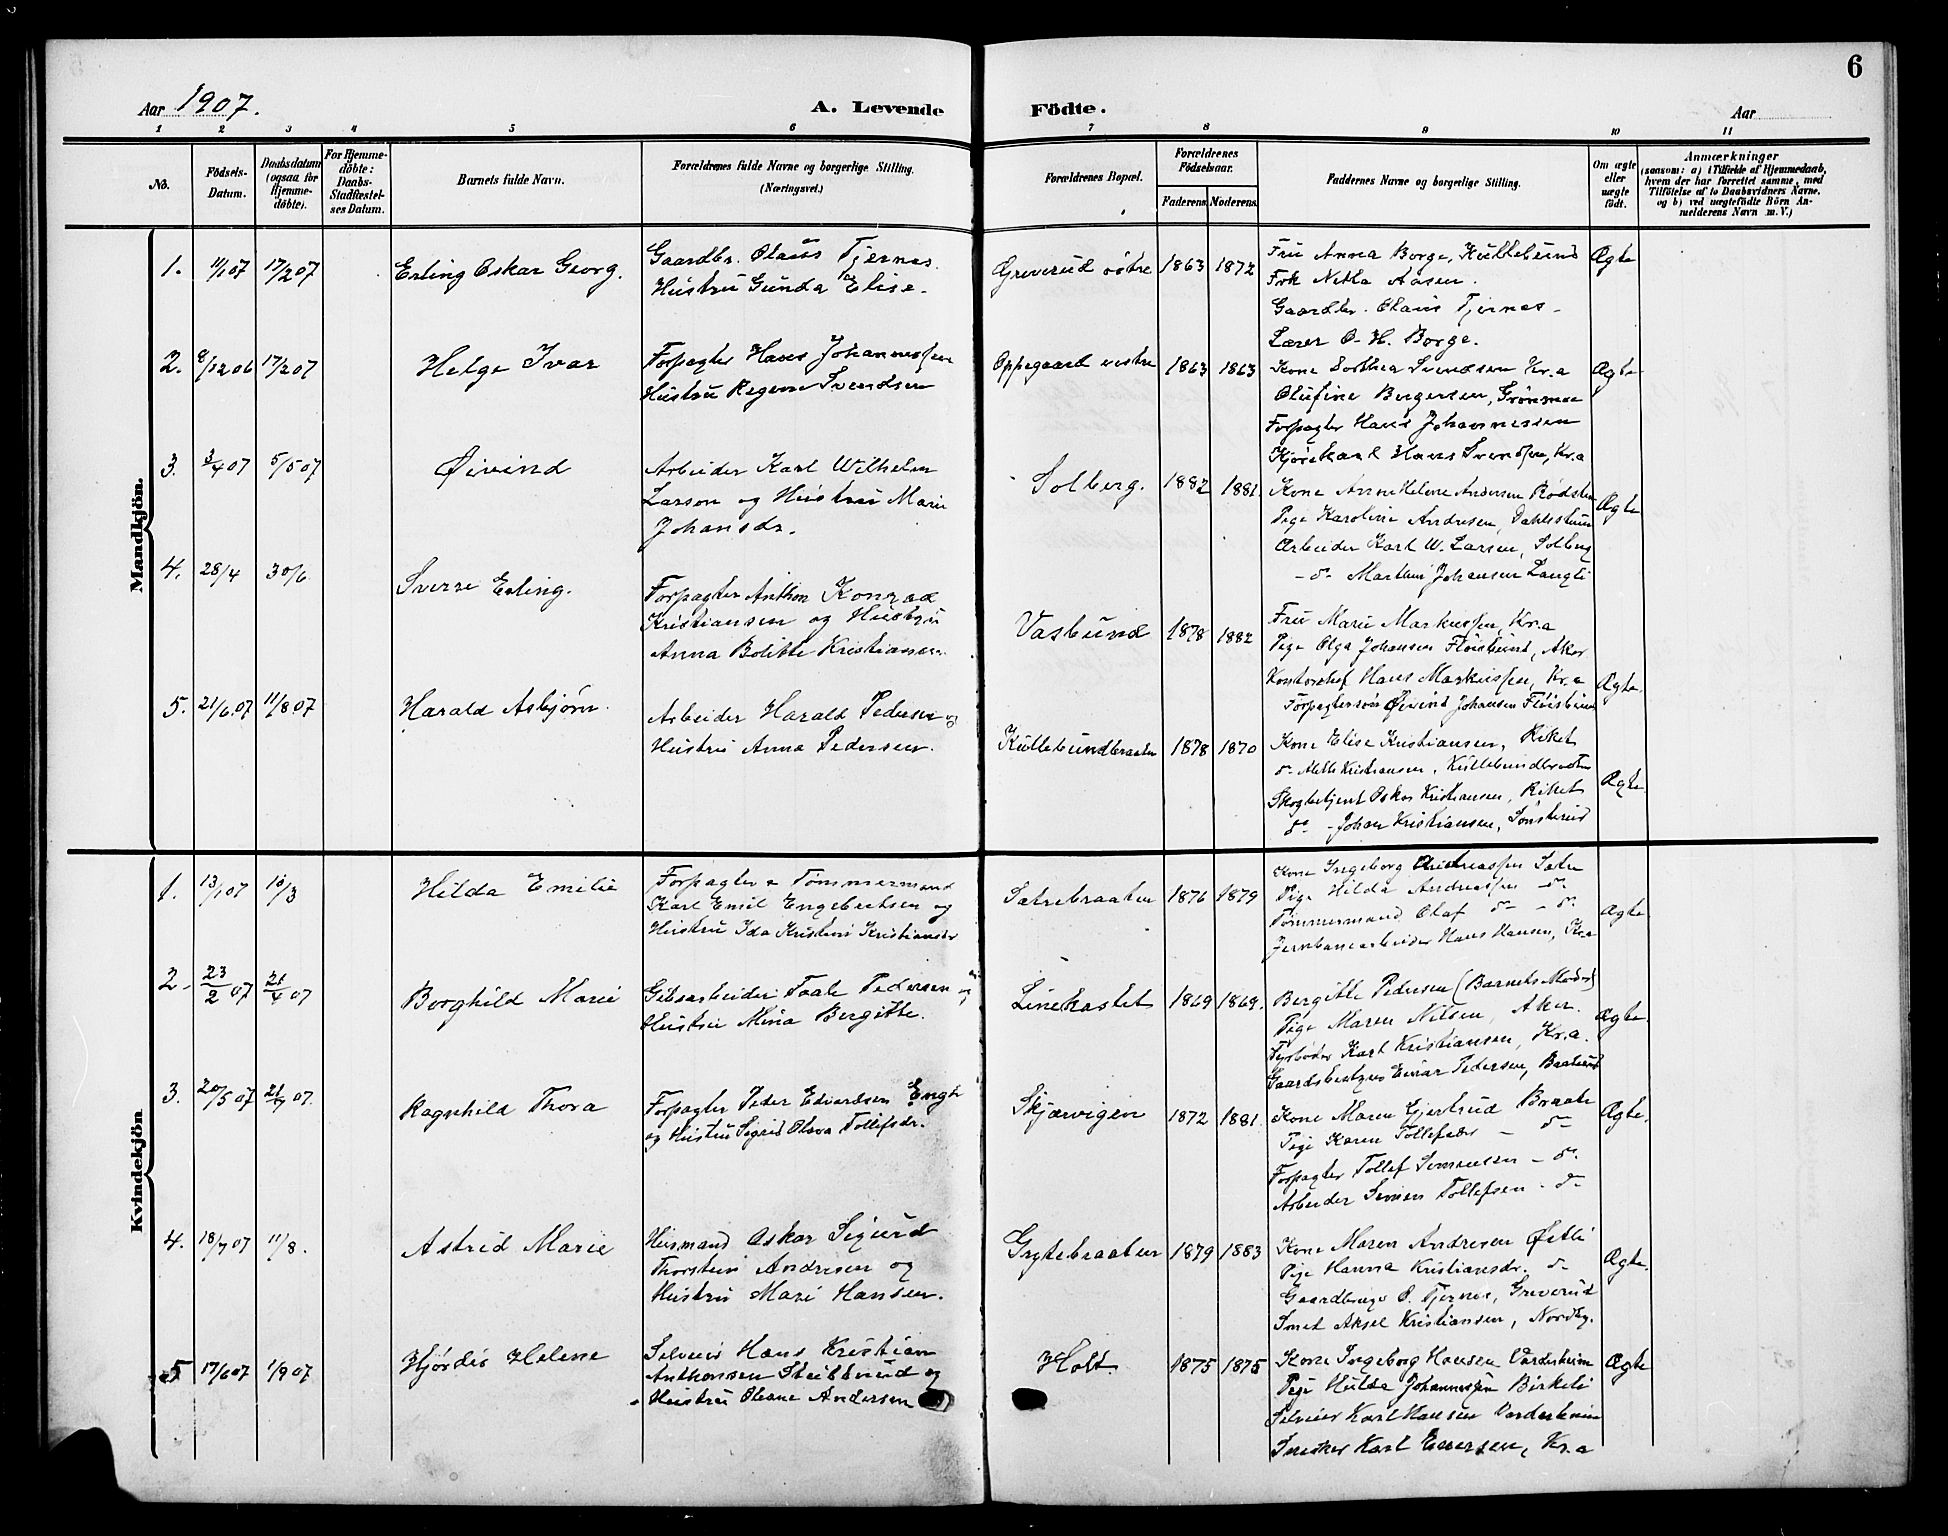 6
Aar 1907.
A. Levende Födte.
Aar
1 2 3 4 5 6 7 8 9 10 11
No.
Födsels-Datum.
Daabsdatum (ogsaa for Hjemme-döbte).
For Hjemme-döbte: Daabs-Stadfæstel-ses Datum.
Barnets fulde Navn.
Forældrenes fulde Navne og borgerlige Stilling.
(Næringsvei.)
Forældrenes Bopæl.
Forældrenes Födselsaar.
Faderens. Moderens.
Faddernes Navne og borgerlige Stilling.
Om ægte eller uægte födt.
Anmærkninger
(saasom: a) i Tilfælde af Hjemmedaab, hvem der har forrettet samme, med Tilföielse af to Daabsvidners Navne. og b) ved uægtefödte Börn An-melderens Navn m. V.)
Mandkjön.
1. 11/1 07 17/2 07 Erling Oskar Georg.
Gaardbr. Olaus Tjernes
Hustru Gunda Elise.
Greverud östre 1863 1872
Fru Anna Borge, Kullebund
Frk Netta Aasen.
Gaardbr. Olaus Tjernes
Lærer O. H. Borge.
Ægte
2. 8/12 06 17/2 07 Helge Ivar
Forpagter Hans Johannessen
Hustru Regine Svendsen
Oppegaard vestre 1863 1863
Kone Dorthea Svendsen Kr.a
Olufine Bergersen, Grönmoe
Forpagter Hans Johannessen
Kjörekarl Hans Svendsen, Kr.a
Ægte
3. 3/4 07 5/5 07 Øivind
Arbeider Karl Wilhelm
Larson og Hustru Marie
Johansdr.
Solberg. 1882 1881.
Kone Anne Helene Andersen Rödsten
Pige Karoline Andresen, Dahlsbunn
Arbeider Karl W. Larsen, Solberg
- do - Johansen Langli
Ægte
4. 28/4 30/6 Sverre Erling.
Forpagter Anthon Konrad
Kristiansen og Hustru
Anna Bolette Kristiansen.
Vasbund 1878 1882
Fru Marie Markussen, Kr.a
Pige Olga Johansen Flöisbund, Aker
Kontorchef Hans Markussen, Kr.a
Forpagtersön Øivind Johansen Flöisbund
Ægte.
5. 21/6.07 11/8 07 Harald Asbjørn.
Arbeider Harald Pedersen og
Hustru Anna Pedersen.
Kullebundbraaten 1878 1870
Kone Elise Kristiansen, Riket
do Alette Kristiansen, Kullebundbraaten
Skogbetjent Oskar Kristiansen, Riket
do - Johan Kristiansen, Sönsterud
Ægte
Kvindekjön
1. 13/1 07 10/3 Hilda Emilie
Forpagter & Tömmermand
Karl Emil Engebretsen og
Hustru Ida Kristine Kristiansdr
Sætrebraaten 1876 1879
Kone Ingeborg Andreassen Sætre
Pige Hilda Andreassen - do -
Tömmermand Olaf do - do.
Jernbanearbeider Hans Hansen, Kr.a
Ægte
2. 23/2 07 21/4 07 Borghild Marie
Gibsarbeider Pedersen og
Hustru Mina Bergitte.
Linekastet 1869 1869.
Bergitte Pedersen (Barnets Moder)
Pige Maren Nilsen, Aker.
Fyrböder Karl Kristiansen, Kr.a.
Gaardsbestyrer Einar Pedersen,
Ægte.
3. 20/5 07 21/7 07. Ragnhild Thora
Forpagter Peder Edvardsen Enge
og Hustru Sigrid Olava Tollefsdr.
Skjærvigen 1872 1881.
Kone Maren Gjertrud Braate
Pige Karen Tollefsdr - do -
Forpagter Tollef Simensen - do.
Arbeider Simen Tollefsen - do -
Ægte.
4. 18/7 07 11/8. Astrid Marie
Husmand Oskar Sigurd
Thorstein Andresen og
Hustru Mari Hansen.
Grytebraaten 1879 1883
Kone Maren Andresen Østli
Pige Hanna Kristiansdr. do
Gaardbruger O. Tjernes, Greverud
Smed Aksel Kristiansen, Nordby.
Ægte.
5 17/6 07 1/9 07 Hjördis Helene
Selveier Hans Kristian
Anthonsen Stubberud og
Hustru Oleane Andersen
Holt. 1875 1875
Kone Ingeborg Hansen Vardeheim
Pige Hulda Johannessen Birkeli
Selveier Karl Hansen Vardeheim
Snekker Karl Enersen, Kr.a
Ægte